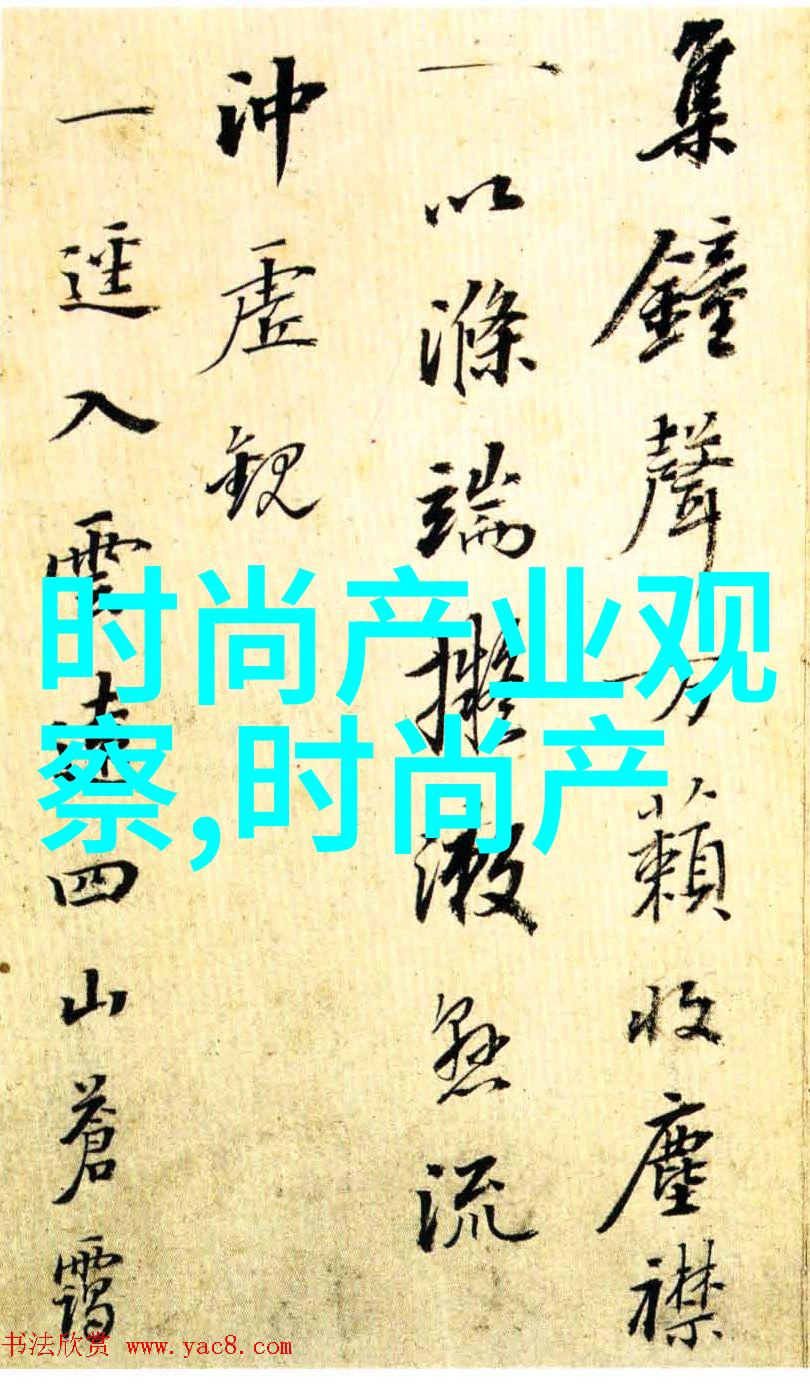 集鐘聲万籟收塵襟
一以滌端擬漱飛流
沖虛觀
一逕入雲遠四山蒼靄
时尚产业观
察,时尚产
书法欣赏 www.yac8.com